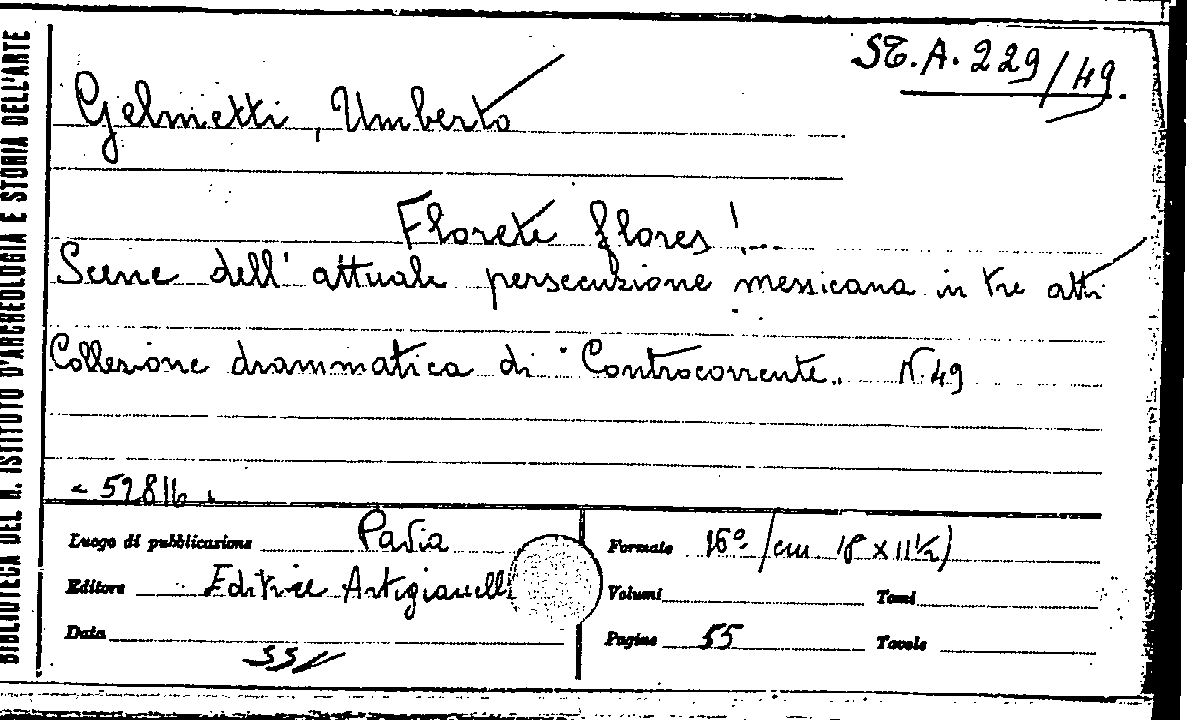 BIBLIOTECA DEL R. ISTITUTO D'ARCHEOLOGIA E STORIA DELL'ARTE
ST. A. 229/49.
Gelmetti, Umberto
Florete flores!...
Scene dell'attuale persecuzione messicana in tre atti
Collezione drammatica di "Controcorrente" N. 49
59816
Luogo di pubblicazione Pavia
Editore Editrice Artigianelli
Data
Formato 16º (cm. 18 x 11½)
Volumi Tomi
Pagine 55 Tavole